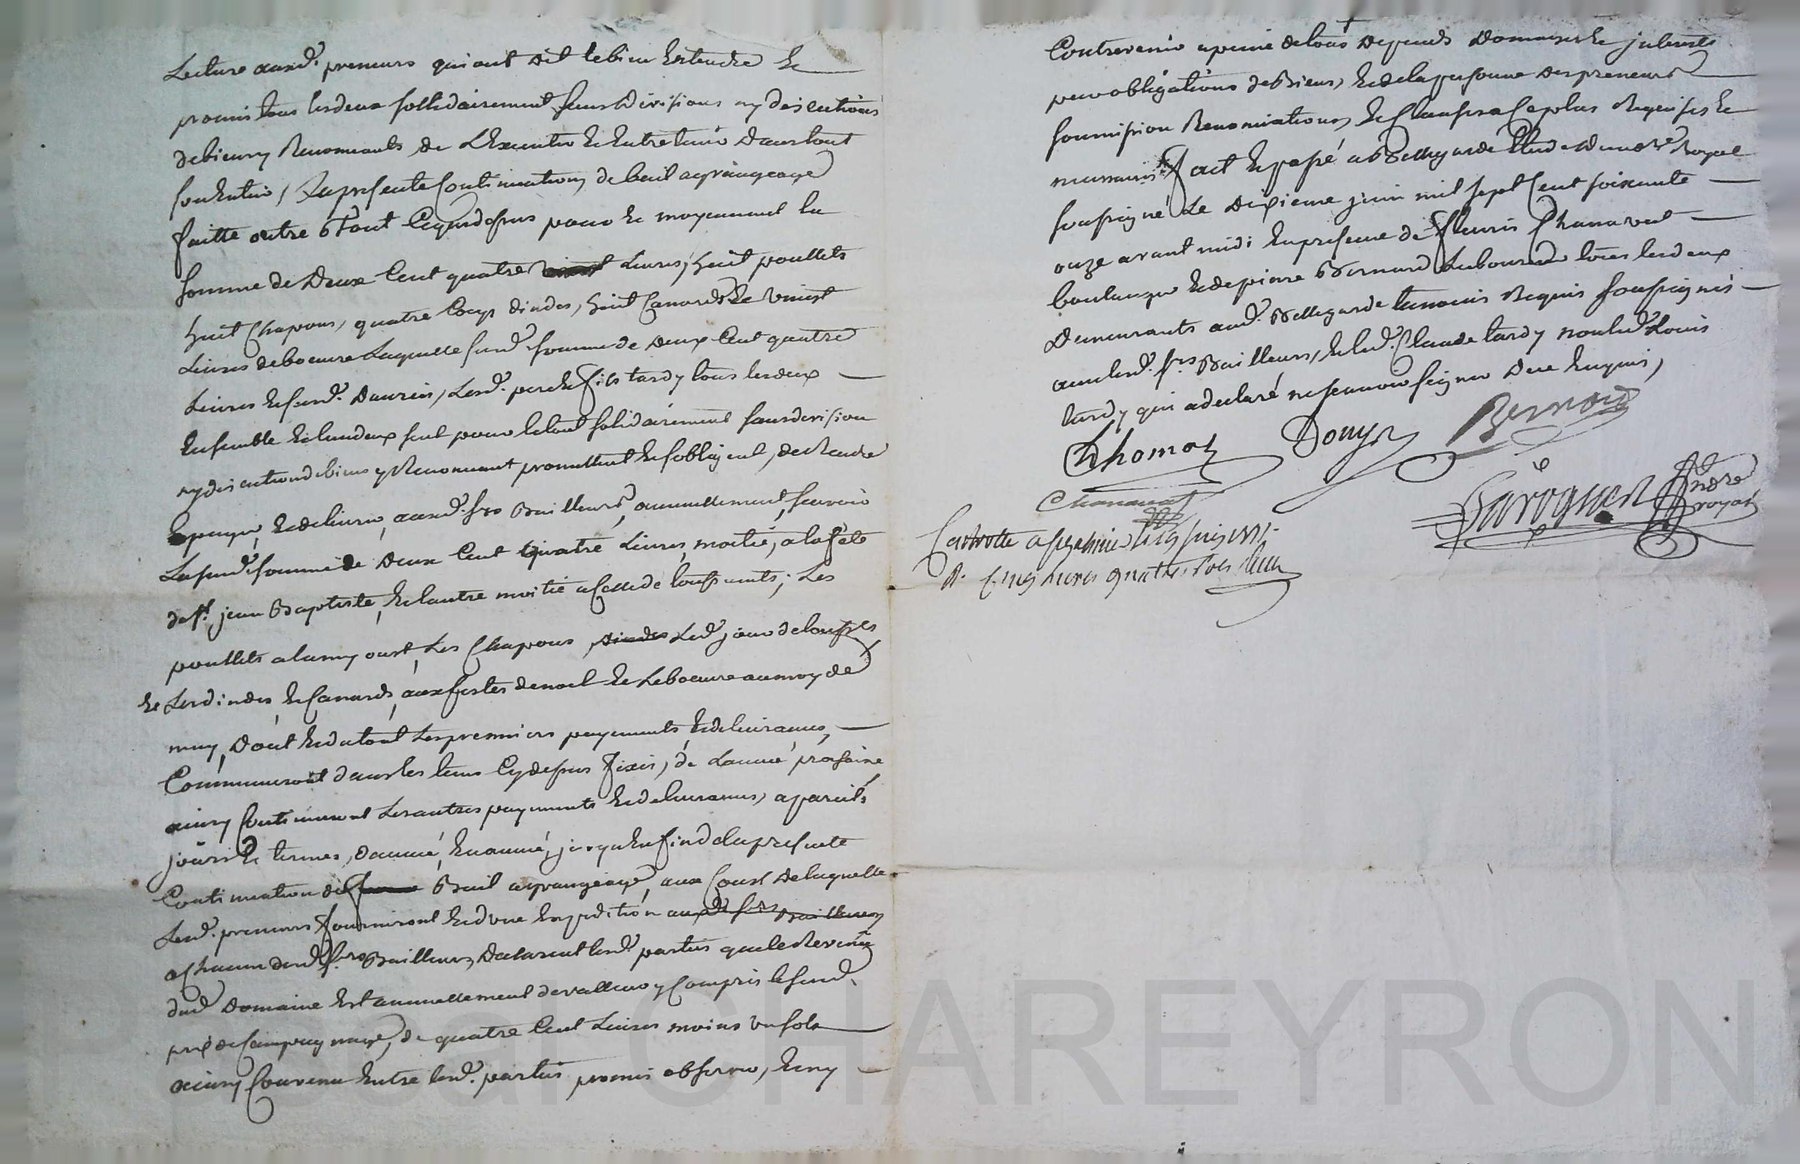 Lecture auxd. preneurs qui ont dit le bien Entendre Et
promis tous les deux sollidairement sans divisions ny discutions
de biens y Renonceants de L'Executer Et Entretenir dans tout
son Entier, La presente Continuation de bail a grangeage
faitte outre Et tout Cy dessus pour Et moyennant la
somme de Deux Cent quatre Livres, huit poullets
huit Chapons, quatre Cocqs dindes, huit Canards Et vingt
Livres de boeurre Laquelle susd. somme de Deux Cent quatre
Livres Et susd. Danrées, Lesd. pere Et fils tardy tous les deux
Ensemble Et l'un d'eux seul pour le tout solidairement sans division
ny discution de biens y Renonceant promettent Et s'obligent, de Rendre
payer, Et delivrer, auxd. srs Bailleurs, annuellement, scavoir
La susd. somme de Deux Cent quatre Livres, moitié, a la fete
de st. jean Baptiste, Et l'autre moitié a Celle de toussaints; Les
poullets a la my aoust, Les Chapons, Led. jour de touss.ts
Et Les dindes, Et Canards, aux festes de noel Et Le boeurre au moy de
may, Dont Et du tout Les premiers payements, Et delivrances,
Commenceront dans les tems Cy dessus fixés, de L'année prochaine
ainsy Continueront Les autres payements Et delivrances, a pareils
jours Et termes, d'année, En année, jusqu'En fin de la presente
Continuation de Bail a grangeage, aux Cours De laquelle
Lesd. preneurs fourniront Et d'une Expedition auxd. srs Bailleurs
a Chacun desd. srs Bailleurs, Declarent lesd. parties que le Revenu
dud. Domaine Est annuellement de valleur y Compris le susd.
prix de Campagnage, de quatre Cent Livres moins un sols
ainsy Convenu Entre lesd. parties, promis observer, Et ny
Contrevenir a peine de tous Depends Domages Et jnterests
par obligations de Biens, Et de la personne Des preneurs
soumission Renonciations, Et Clauses a Ce plus Requises Et
necessaires fait Et passé a Bellegarde Etude Du nore. Royal
soussigné Le Dixieme juin mil sept Cent soixante
onze avant midi En presence de fleuris Chanavat
boulanger Et de pierre Bernard Laboureur tous les deux
Demeurants aud. Bellegarde temoins Requis soussignés
avec lesd. srs Bailleurs, Et led. Claude tardy non led. Louis
tardy qui a declaré ne scavoir signer De ce Enquis,
Thomas Bouyer Bernard
Chanavat
Baroquier nore royal
Controllé a Le juin 1771
R. Cinq livres quatre sols
CHAREYRON